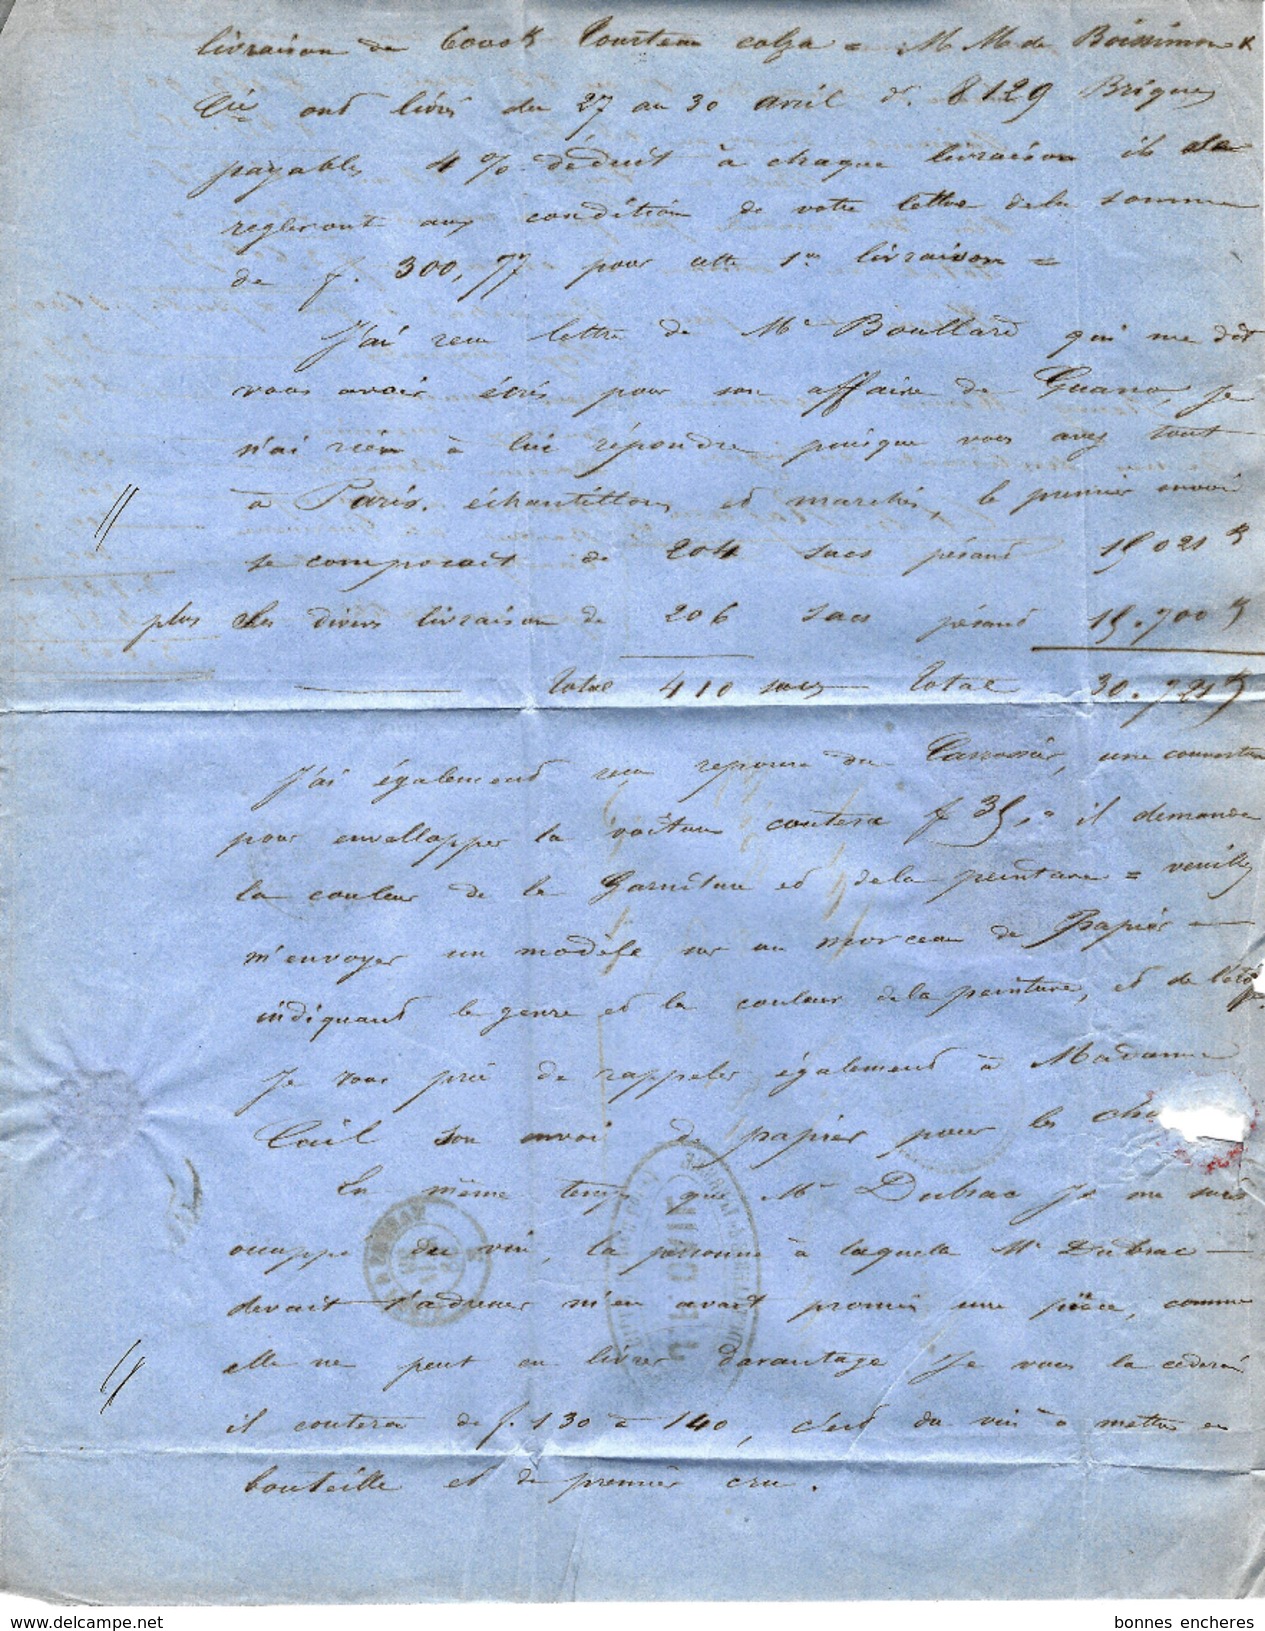 livraison de 6000 k Tourteau colza = M M de Boissimon &
Cie ont livré du 27 au 30 avril d. 8129 Briques
payables 4 % déduit à chaque livraison ils
regleront aux condition de votre lettre de la somme
de f. 300,77 pour cette 1re livraison =
J'ai reçu lettre de Mr Boullard qui me dit
vous avoir écris pour son affaire de Guano, Je
n'ai rien à lui répondre puisque vous avez tout
à Paris, échantillons et marchés, le premier envoi
se composait de 204 sacs pésant 15 021 k
plus les divers livraison de 206 sacs pésant 15.700 k
Total 410 sacs Total 30.721 k
J'ai également reçu reponse du Carrossier, une couverture
pour envellopper la voiture coutera f 35," il demande
la couleur de la Garniture et de la peinture = veuillez
m'envoyer un modèle sur un morceau de Papier
indiquant le genre et la couleur de la peinture, et de l'étoffe.
Je vous prie de rappeler également à Madame
Cail son envoi de papier pour les
En même temps que Mr Dubrac Je me suis
occuppé du vin, la personne à laquelle Mr Dubrac
devait s'adresser m'en avait promis une pièce, comme
elle ne peut en livrer davantage Je vous la cèderai
il coutera de f. 130 à 140, c'est du vin à mettre en
bouteille et de premier cru.
bonnes encheres